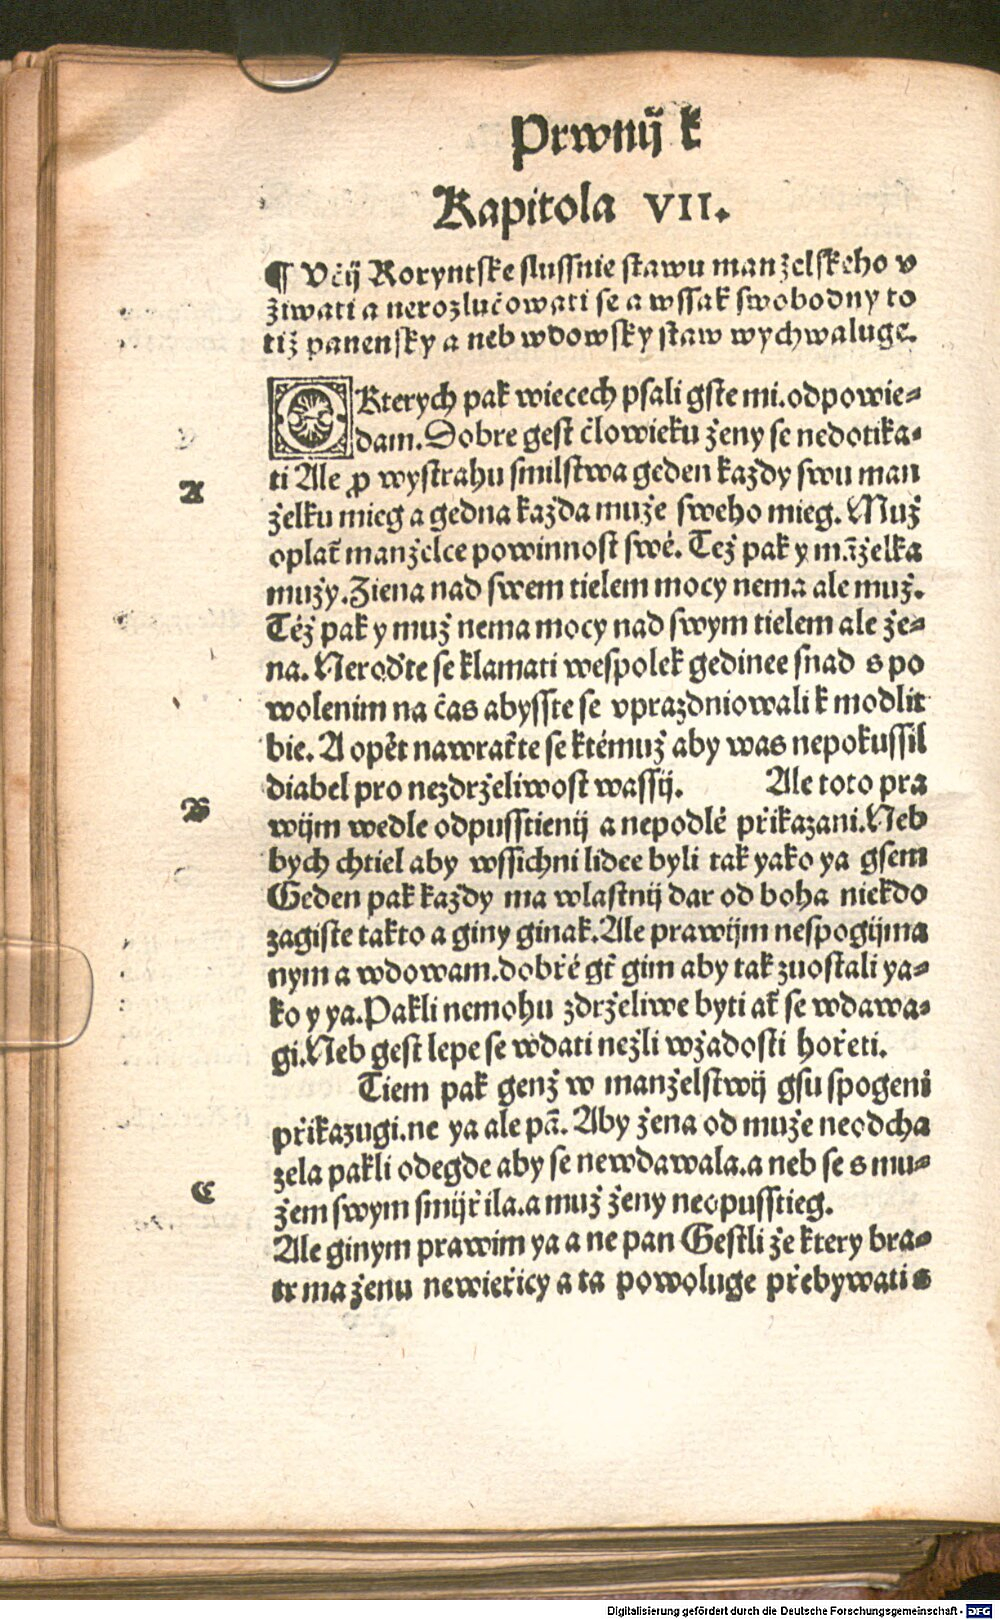 Prwnij k
Kapitola VII.
¶ Včij Koryntske slussnie stawu manželskeho v
žiwati a nerozlučowati se a wssak swobodny to
tiž panensky a neb wdowsky staw wychwaluge.
O Kterych pak wiecech psali gste mi. odpowie⸗
dam. Dobre gest člowieku ženy se nedotika⸗
ti Ale ꝓ wystrahu smilstwa geden každy swu man
A
želku mieg a gedna každa muže sweho mieg. Muž
oplať manželce powinnost swé. Tež pak y māželka
mužy. Ziena nad swem tielem mocy nema ale muž.
Též pak y muž nema mocy nad swym tielem ale že⸗
na. Neroďte se klamati wespolek gedinee snad s po
wolenim na čas abysste se vprazdniowali k modlit
bie. A opět nawraťte se ktémuž aby was nepokussil
diabel pro nezdrželiwost wassij. Ale toto pra
B
wijm wedle odpusstienij a nepodlé přikazani. Neb
bych chtiel aby wssichni lidee byli tak yako ya gsem
Geden pak každy ma wlastnij dar od boha niekdo
zagiste takto a giny ginak. Ale prawijm nespogijma
nym a wdowam. dobřé gť gim aby tak zuostali ya⸗
ko y ya. Pakli nemohu zdrželiwe byti ať se wdawa⸗
gi. Neb gest lepe se wdati nežli wžadosti hořeti.
Tiem pak genž w manželstwij gsu spogeni
přikazugi. ne ya ale pā. Aby žena od muže neodcha
zela pakli odegde aby se newdawala. a neb se s mu⸗
C
žem swym smijřila. a muž ženy neopusstieg.
Ale ginym prawim ya a ne pan Gestli že ktery bra⸗
tr ma ženu newieřicy a ta powoluge přebywati s
Digitalisierung gefördert durch die Deutsche Forschungsgemeinschaft - DFG